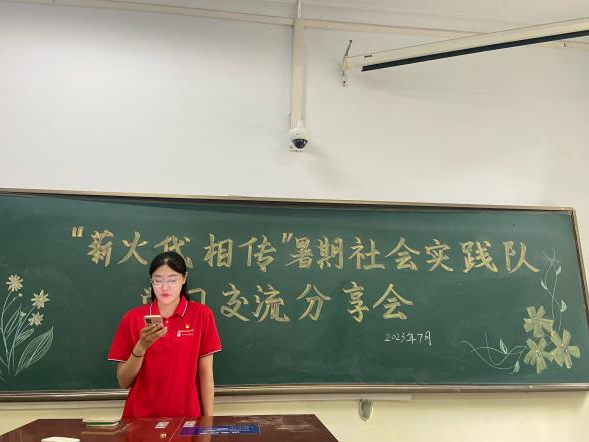 “薪火代相传”暑期社会实践队
习交流分享会
2023年7月